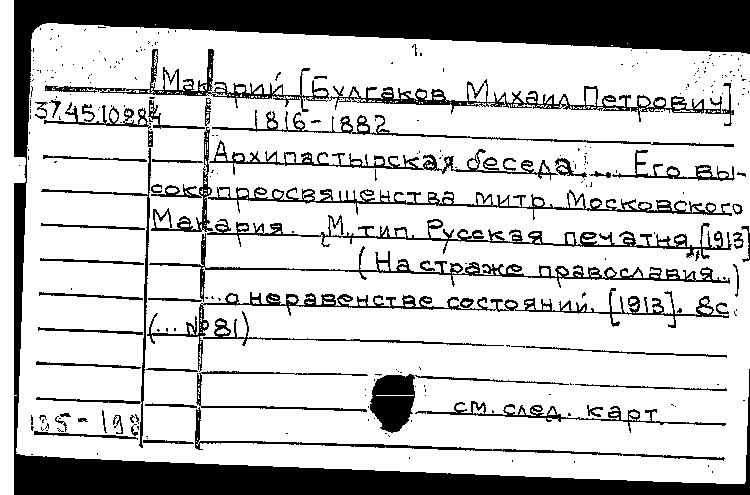 1.
Макарий, [Булгаков, Михаил Петрович]
37.45.10984 1816-1882
Архипастырская беседа ... Его вы-
сокопреосвященства митр. Московского
Макария. М., тип. Русская печатня, [1913]
(На страже православия...)
...о неравенстве состояний. [1913]. 8с.
(... №81)
см. след. карт.
195-198